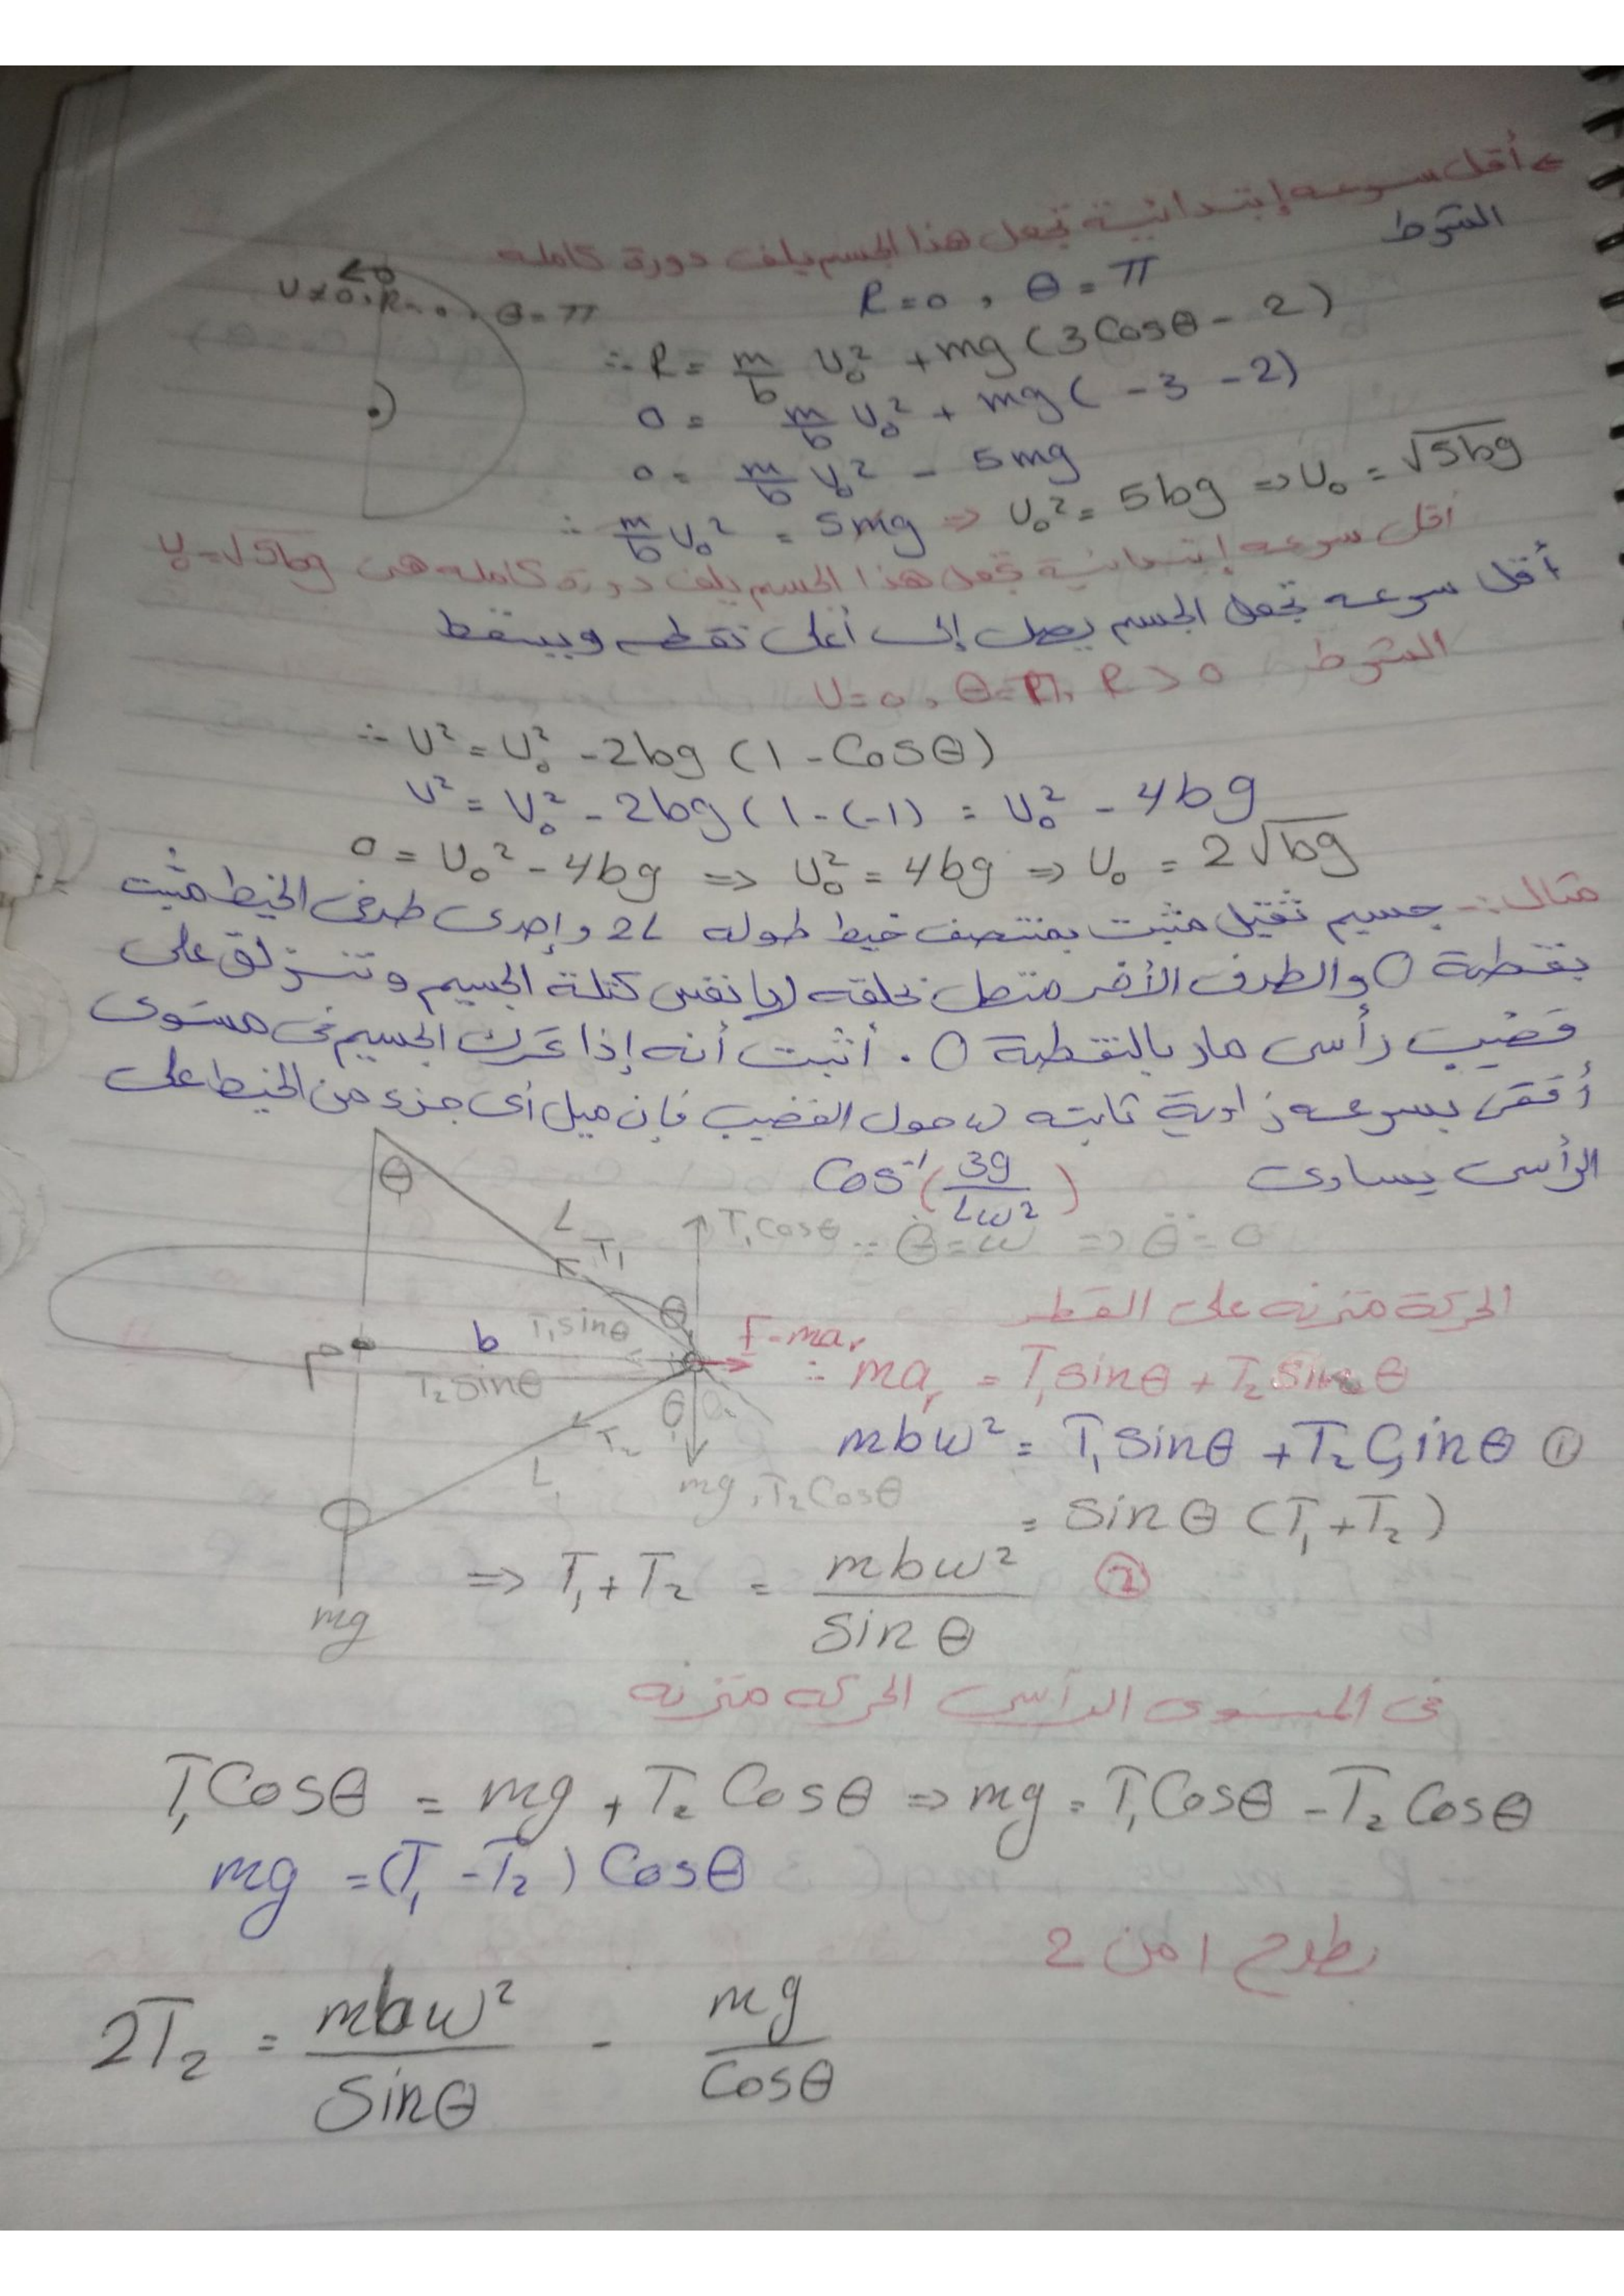 ← أقل سرعه إبتدائية تجعل هذا الجسم يلف دورة كامله
الشرط
R = 0 , θ = π
U≠0, R=0, θ=π
∴ R = m/b U₀² + mg (3Cosθ - 2)
0 = m/b U₀² + mg ( -3 -2)
0 = m/b U₀² - 5mg
∴ m/b U₀² = 5mg ⇒ U₀² = 5bg ⇒ U₀ = √5bg
أقل سرعه إبتدائية تجعل هذا الجسم يلف دورة كامله هى U₀=√5bg
أقل سرعه تجعل الجسم يصل إلى أعلى نقطه ويسقط
الشرط U=0 , θ=π, R>0
∴ U² = U₀² - 2bg (1 - Cosθ)
U² = U₀² - 2bg (1-(-1) = U₀² - 4bg
0 = U₀² - 4bg ⇒ U₀² = 4bg ⇒ U₀ = 2√bg
مثال:- جسيم ثقيل مثبت بمنتصف خيط طوله 2L وإحدى طرفى الخيط مثبت
بنقطة O والطرف الأخر متصل بحلقه لها نفس كتلة الجسيم وتنزلق على
قضيب رأسى مار بالنقطة O . أثبت أنه إذا تحرك الجسيم فى مستوى
أفقى بسرعه زاوية ثابته ω حول القضيب فإن ميل أى جزء من الخيط على
الرأسى يساوى Cos⁻¹(3g/Lω²)
θ
L
T₁
T₁Cosθ
∴ θ̇ = ω ⇒ θ̈ = 0
الحركة متزنه على القطر
θ
T₁sinθ
F=maᵣ
b
P
T₂sinθ
∴ maᵣ = T₁sinθ + T₂sinθ
θ
T₂
L
mbω² = T₁sinθ + T₂Sinθ ①
mg, T₂Cosθ
= sinθ (T₁+T₂)
⇒ T₁+T₂ = mbω²/sinθ ②
mg
فى المستوى الرأسى الحركه متزنه
T₁Cosθ = mg + T₂Cosθ ⇒ mg = T₁Cosθ - T₂Cosθ
mg = (T₁-T₂) Cosθ
بطرح 1 من 2
2T₂ = mbω²/Sinθ - mg/Cosθ